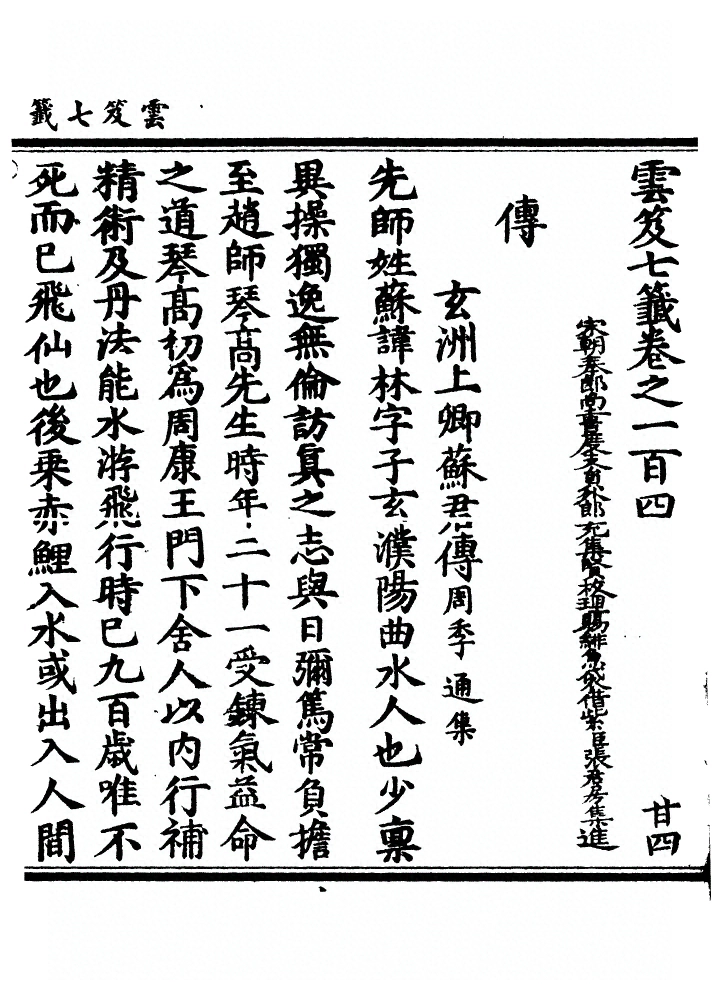 雲笈七籤
雲笈七籤卷之一百四
廿四
宋朝奉郎尚書度支員外郎充集賢校理賜緋魚袋借紫臣張君房集進
傳
玄洲上卿蘇君傳周季通集
先師姓蘇諱林字子玄濮陽曲水人也少禀
異操獨逸無倫訪真之志與日彌篤常負擔
至趙師琴高先生時年二十一受鍊氣益命
之道琴高初為周康王門下舍人以內行補
精術及丹法能水游飛行時已九百歲唯不
死而已飛仙也後乘赤鯉入水或出入人間